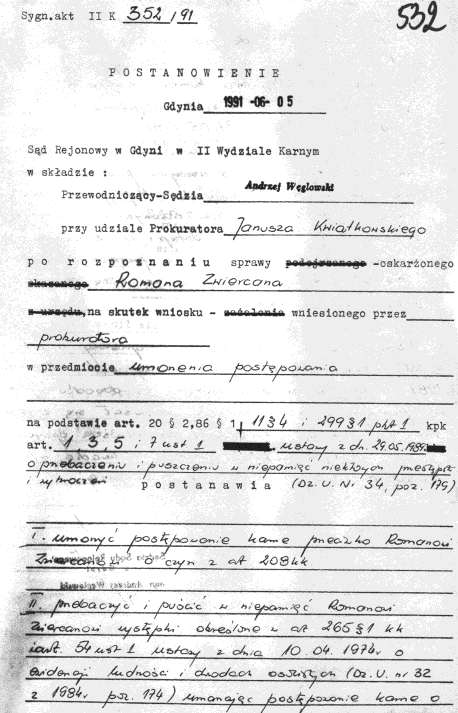 Sygn.akt II K 352/91
532
POSTANOWIENIE
Gdynia 1991 -06- 05
Sąd Rejonowy w Gdyni w II Wydziale Karnym
w składzie :
Przewodniczący-Sędzia Andrzej Węglowski
przy udziale Prokuratora Janusza Kwiatkowskiego
po rozpoznaniu sprawy podejrzanego -oskarżonego
skazanego Romana Zwiercana
z urzędu, na skutek wniosku - zażalenia wniesionego przez
prokuratora
w przedmiocie umorzenia postępowania
na podstawie art. 20 § 2,86 § 1, i 299§1 pkt 1 kpk
art. 1 3, 5 i 7 ust 1 ustawy z dn. 29.05.1989r
o przebaczeniu i puszczeniu w niepamięć niektórych przestępstw
i wykroczeń postanawia (Dz. U. Nr 34, poz. 179)
I. umorzyć postępowanie karne przeciwko Romanowi
Zwiercanowi o czyn z art 208 kk
II. przebaczyć i puścić w niepamięć Romanowi
Zwiercanowi występki określone w art 265 § 1 kk
i art. 54 ust 1 ustawy z dnia 10.04.1974r o
ewidencji ludności i dowodach osobistych (Dz. U. nr 32
z 1984r poz. 174) umarzając postępowanie karne o